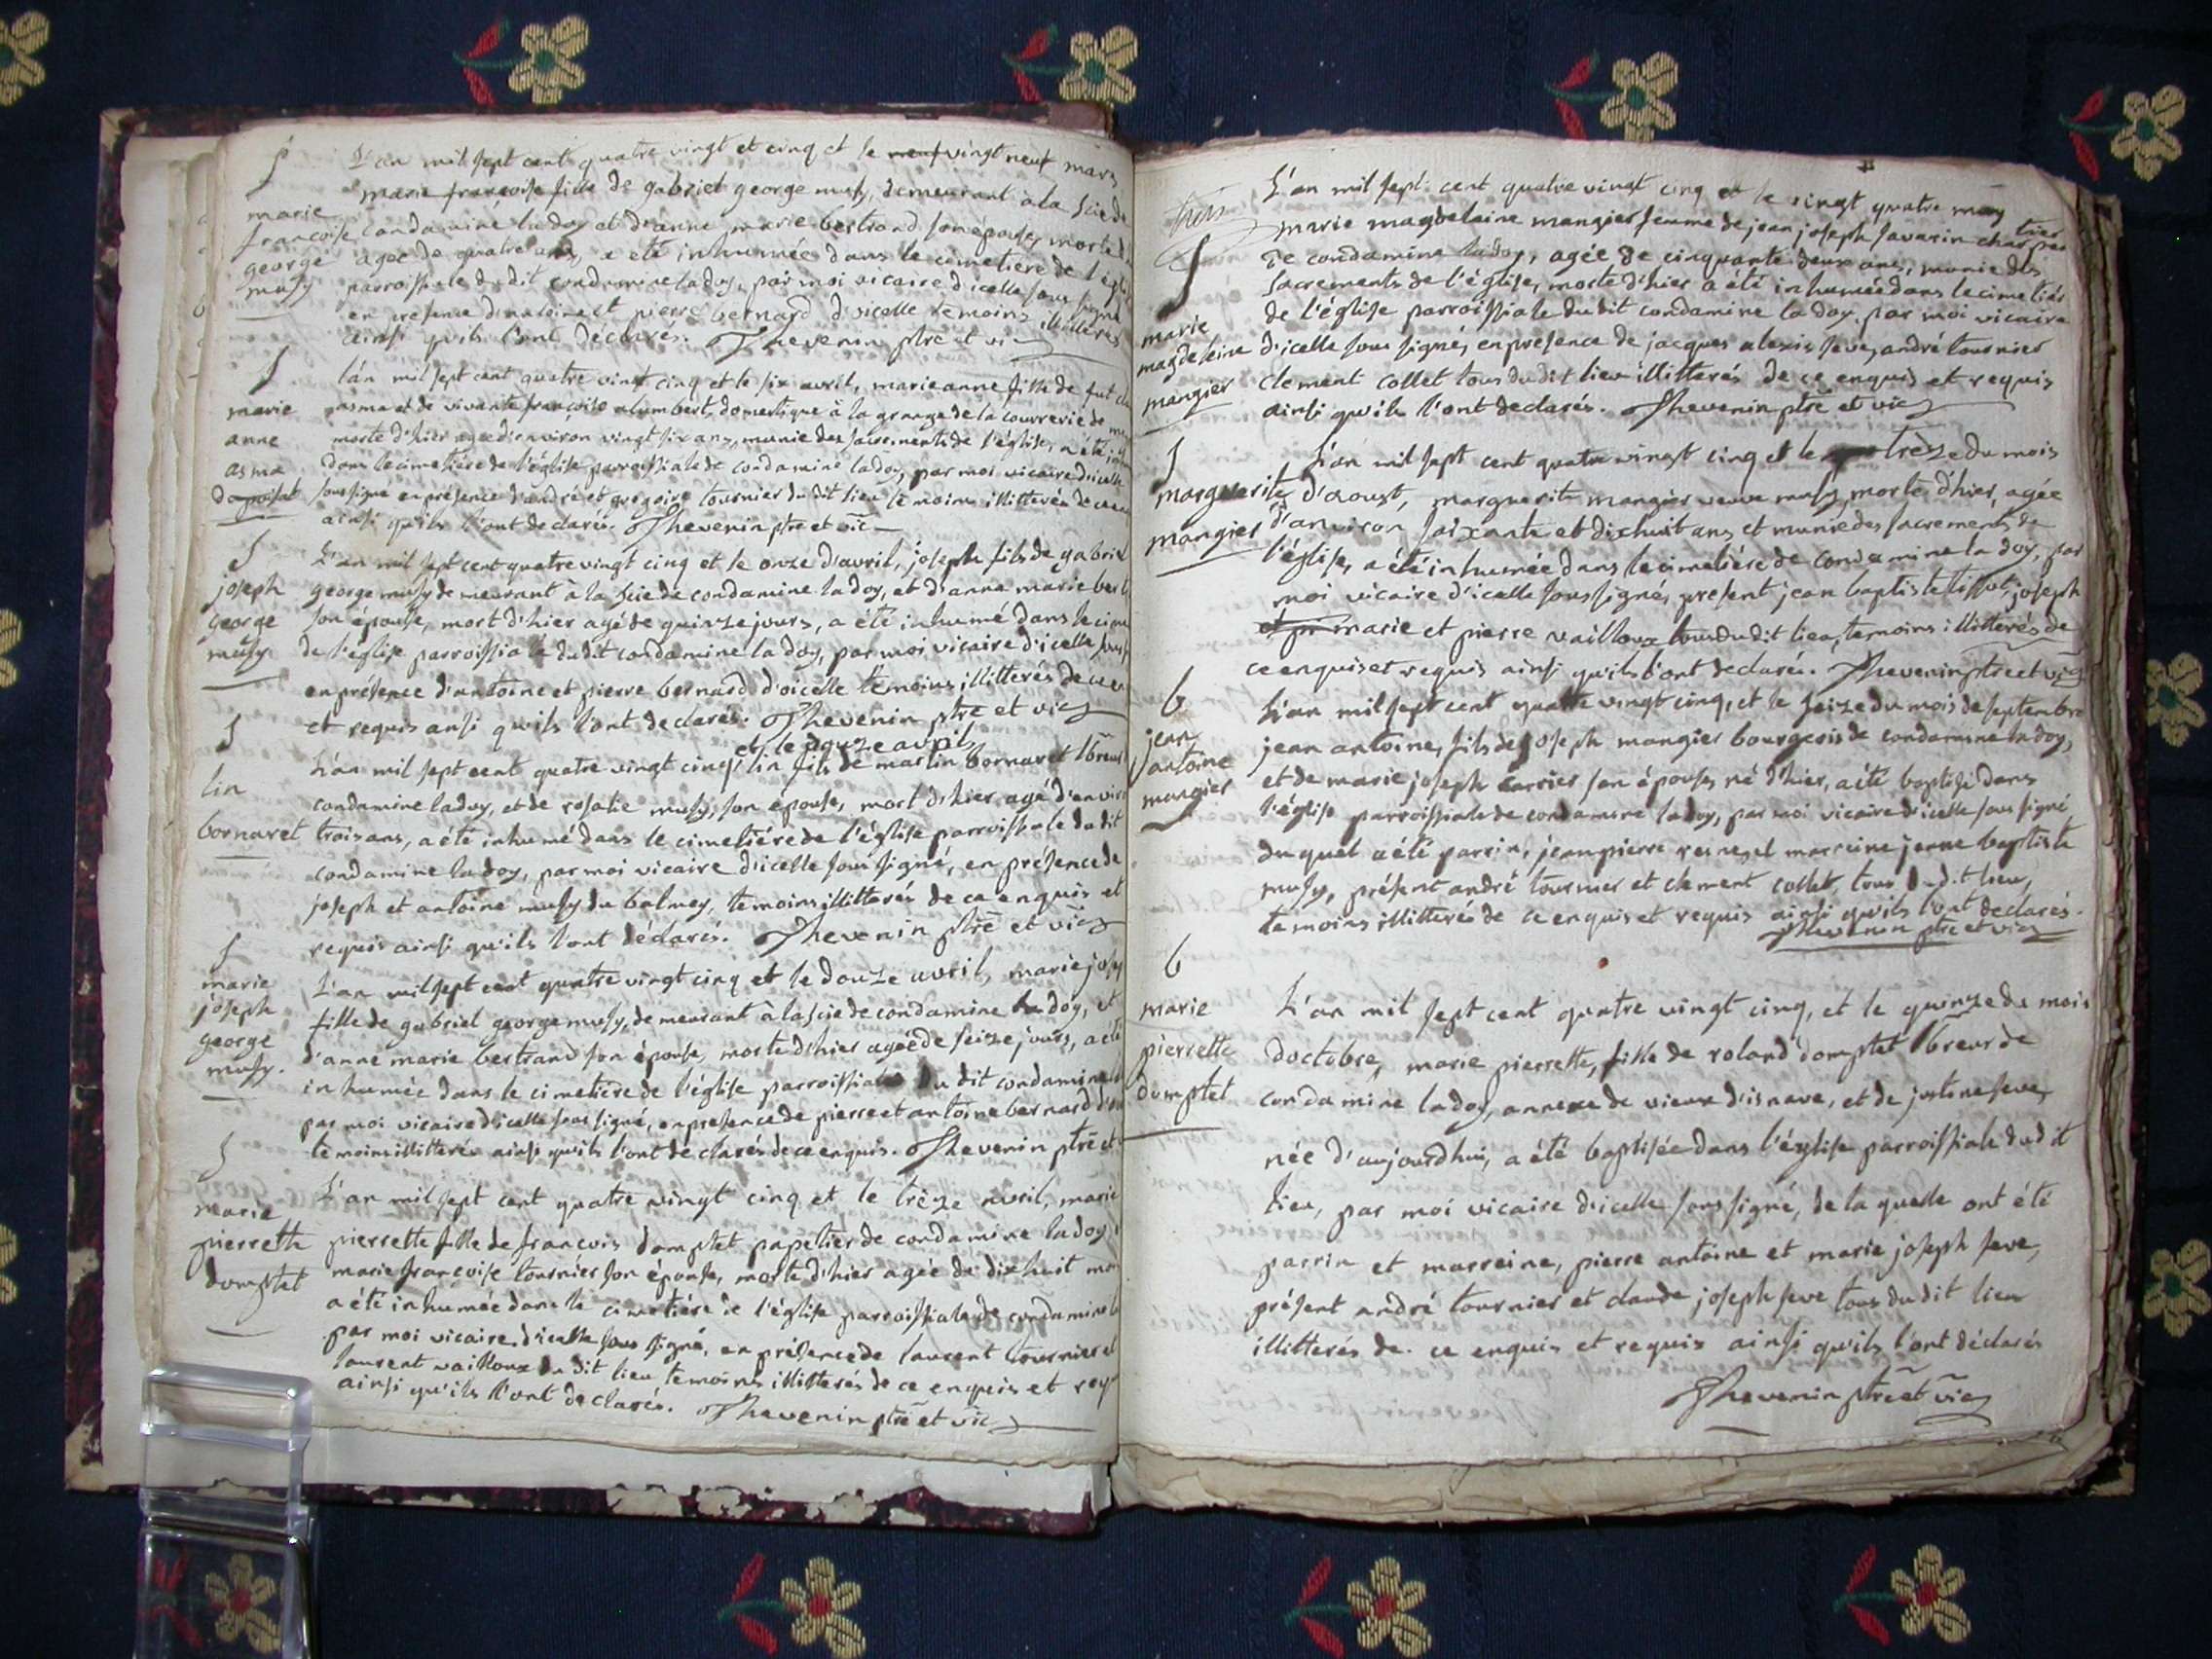 S
L'an mil sept cent quatre vingt et cinq et le neuf vingt neuf mars
marie françoise fille de gabriel george musy, demeurant à la scie de
marie
françoise
george
musy
condamine ladoy et d'anne marie bertrand son épouse, morte d
agée de quatre ans, a eté inhumée dans le cimetiere de l'égli
parroissiale dudit condamine ladoy, par moi vicaire d'icelle sous signé
en presence d'antoine et pierre bernard d'icelle temoins illitterés
ainsi qu'ils l'ont déclarés. Thevenin ptre et vic
S
marie
anne
asma
l'an mil sept cent quatre vint cinq et le six avril, marie anne fille de fut
asma et de vivante françoise humbert, domestique à la grange de la couvrerie de
morte d'hier agée d'environ vingt six ans, munie des sacrements de l'église, a été
dans le cimetiére de l'église parroissiale de condamine ladoy, par moi vicaire d'icelle
sous signé en présence d'andré et gregoire tournier du dit lieu témoins illitterés de ce
ainsi qu'ils l'ont declarés. Thevenin ptre et vic
S
joseph
george
musy
L'an mil sept cent quatre vingt cinq et le onze d'avril, joseph fils de gabriel
george musy demeurant à la scie de condamine ladoy, et d'anne marie bert
son épouse, mort d'hier agé de quinze jours, a été inhumé dans le cime
de l'église parroissiale dudit condamine la doy, par moi vicaire d'icelle sous
en présence d'antoine et pierre bernard d'icelle temoins illitterés de ce en
et requis ansi qu'ils l'ont declarés. Thevenin ptre et vic
S
lin
bornaret
et le douze avril
L'an mil sept cent quatre vingt cinq, lin fils de martin bornaret lbreur
condamine ladoy, et de rosalie musy, son épouse, mort d'hier agé d'envir
trois ans, a été inhumé dans le cimetiére de l'église parroissiale du dit
condamine la doy, par moi vicaire d'icelle sous signé, en présence de
joseph et antoine musy du balmey, temoins illitterés de ce enquis et
requis ainsi qu'ils l'ont déclarés. Thevenin ptre et vic
S
marie
joseph
george
musy.
L'an mil sept cent quatre vingt cinq et le douze avril, marie josep
fille de gabriel george musy, demeurant à la scie de condamine la doy, et
d'anne marie bertrand son épouse, morte d'hier agée de seize jours, a été
inhumée dans le cimetiere de l'église parroissiale du dit condamine
par moi vicaire d'icelle sous signé, en presence de pierre et antoine bernard
temoins illitterés ainsi qu'ils l'ont declarés de ce enquis. Thevenin ptre et
S
marie
pierrette
domptet
L'an mil sept cent quatre vingt cinq et le trèze avril, marie
pierrette fille de francois domptet papetier de condamine la doy
marie françoise tournier son épouse, morte d'hier agée de dixhuit mo
a été inhumée dans le cimetiére de l'église parroissiale de condamine
par moi vicaire d'icelle sous signé, en présence de laurent tournier et
laurent vailloux du dit lieu, temoins illitterés de ce enquis et req
ainsi qu'ils l'ont declarés. Thevenin ptre et vic
S
marie
magdeleine
mangier
L'an mil sept cent quatre vingt cinq et le vingt quatre may
marie magdelaine mangier femme de jean joseph savarin charpentier
de condamine ladoy, agée de cinquante deux ans, munie des
sacrements de l'église, morte d'hier a été inhumée dans le cimetiér
de l'église parroissiale du dit condamine la doy, par moi vicaire
d'icelle sous signé, en presence de jacques alexis seve, andré tournier
clement collet tous du dit lieu illitterés de ce enquis et requis
ainsi qu'ils l'ont declarés. Thevenin ptre et vic
S
marguerite
mangier
L'an mil sept cent quatre vingt cinq et le trèze du mois
d'aoust, marguerite mangier veuve musy, morte d'hier, agée
d'anviron soixante et dixhuit ans et munie des sacrements de
l'église, a été inhumée dans le cimetiére de condamine la doy, par
moi vicaire d'icelle sous signé, present jean baptiste tissot, joseph
et pr marie et pierre vailloux tous du dit lieu, temoins illitterés de
ce enquis et requis ainsi qu'ils l'ont declarés. Thevenin ptre et vic
b
jean
antoine
mangier
L'an mil sept cent quatre vingt cinq, et le seize du mois de septembre
jean antoine, fils de joseph mangier bourgeois de condamine ladoy,
et de marie joseph carrier son épouse, né d'hier, a été baptisé dans
l'église parroissiale de condamine ladoy, par moi vicaire d'icelle sous signé,
du quel a été parrin, jean pierre et marreine jeanne baptiste
musy, présent andré tournier et clement collet, tous dudit lieu,
temoins illitterés de ce enquis et requis ainsi qu'ils l'ont declarés.
Thevenin ptre et vic
b
marie
pierrette
domptet
L'an mil sept cent quatre vingt cinq, et le quinze du mois
doctobre, marie pierrette, fille de roland domptet lbreur de
condamine ladoy, annexe de vieux d'isnave, et de justine seve,
née d'aujourdhui, a été baptisée dans l'église parroissiale dudit
lieu, par moi vicaire d'icelle sous signé, de la quelle ont été
parrin et marreine, pierre antoine et marie joseph seve,
présent andré tournier et claude joseph seve tous du dit lieu
illitterés de ce enquis et requis ainsi qu'ils l'ont déclarés
Thevenin ptre et vic